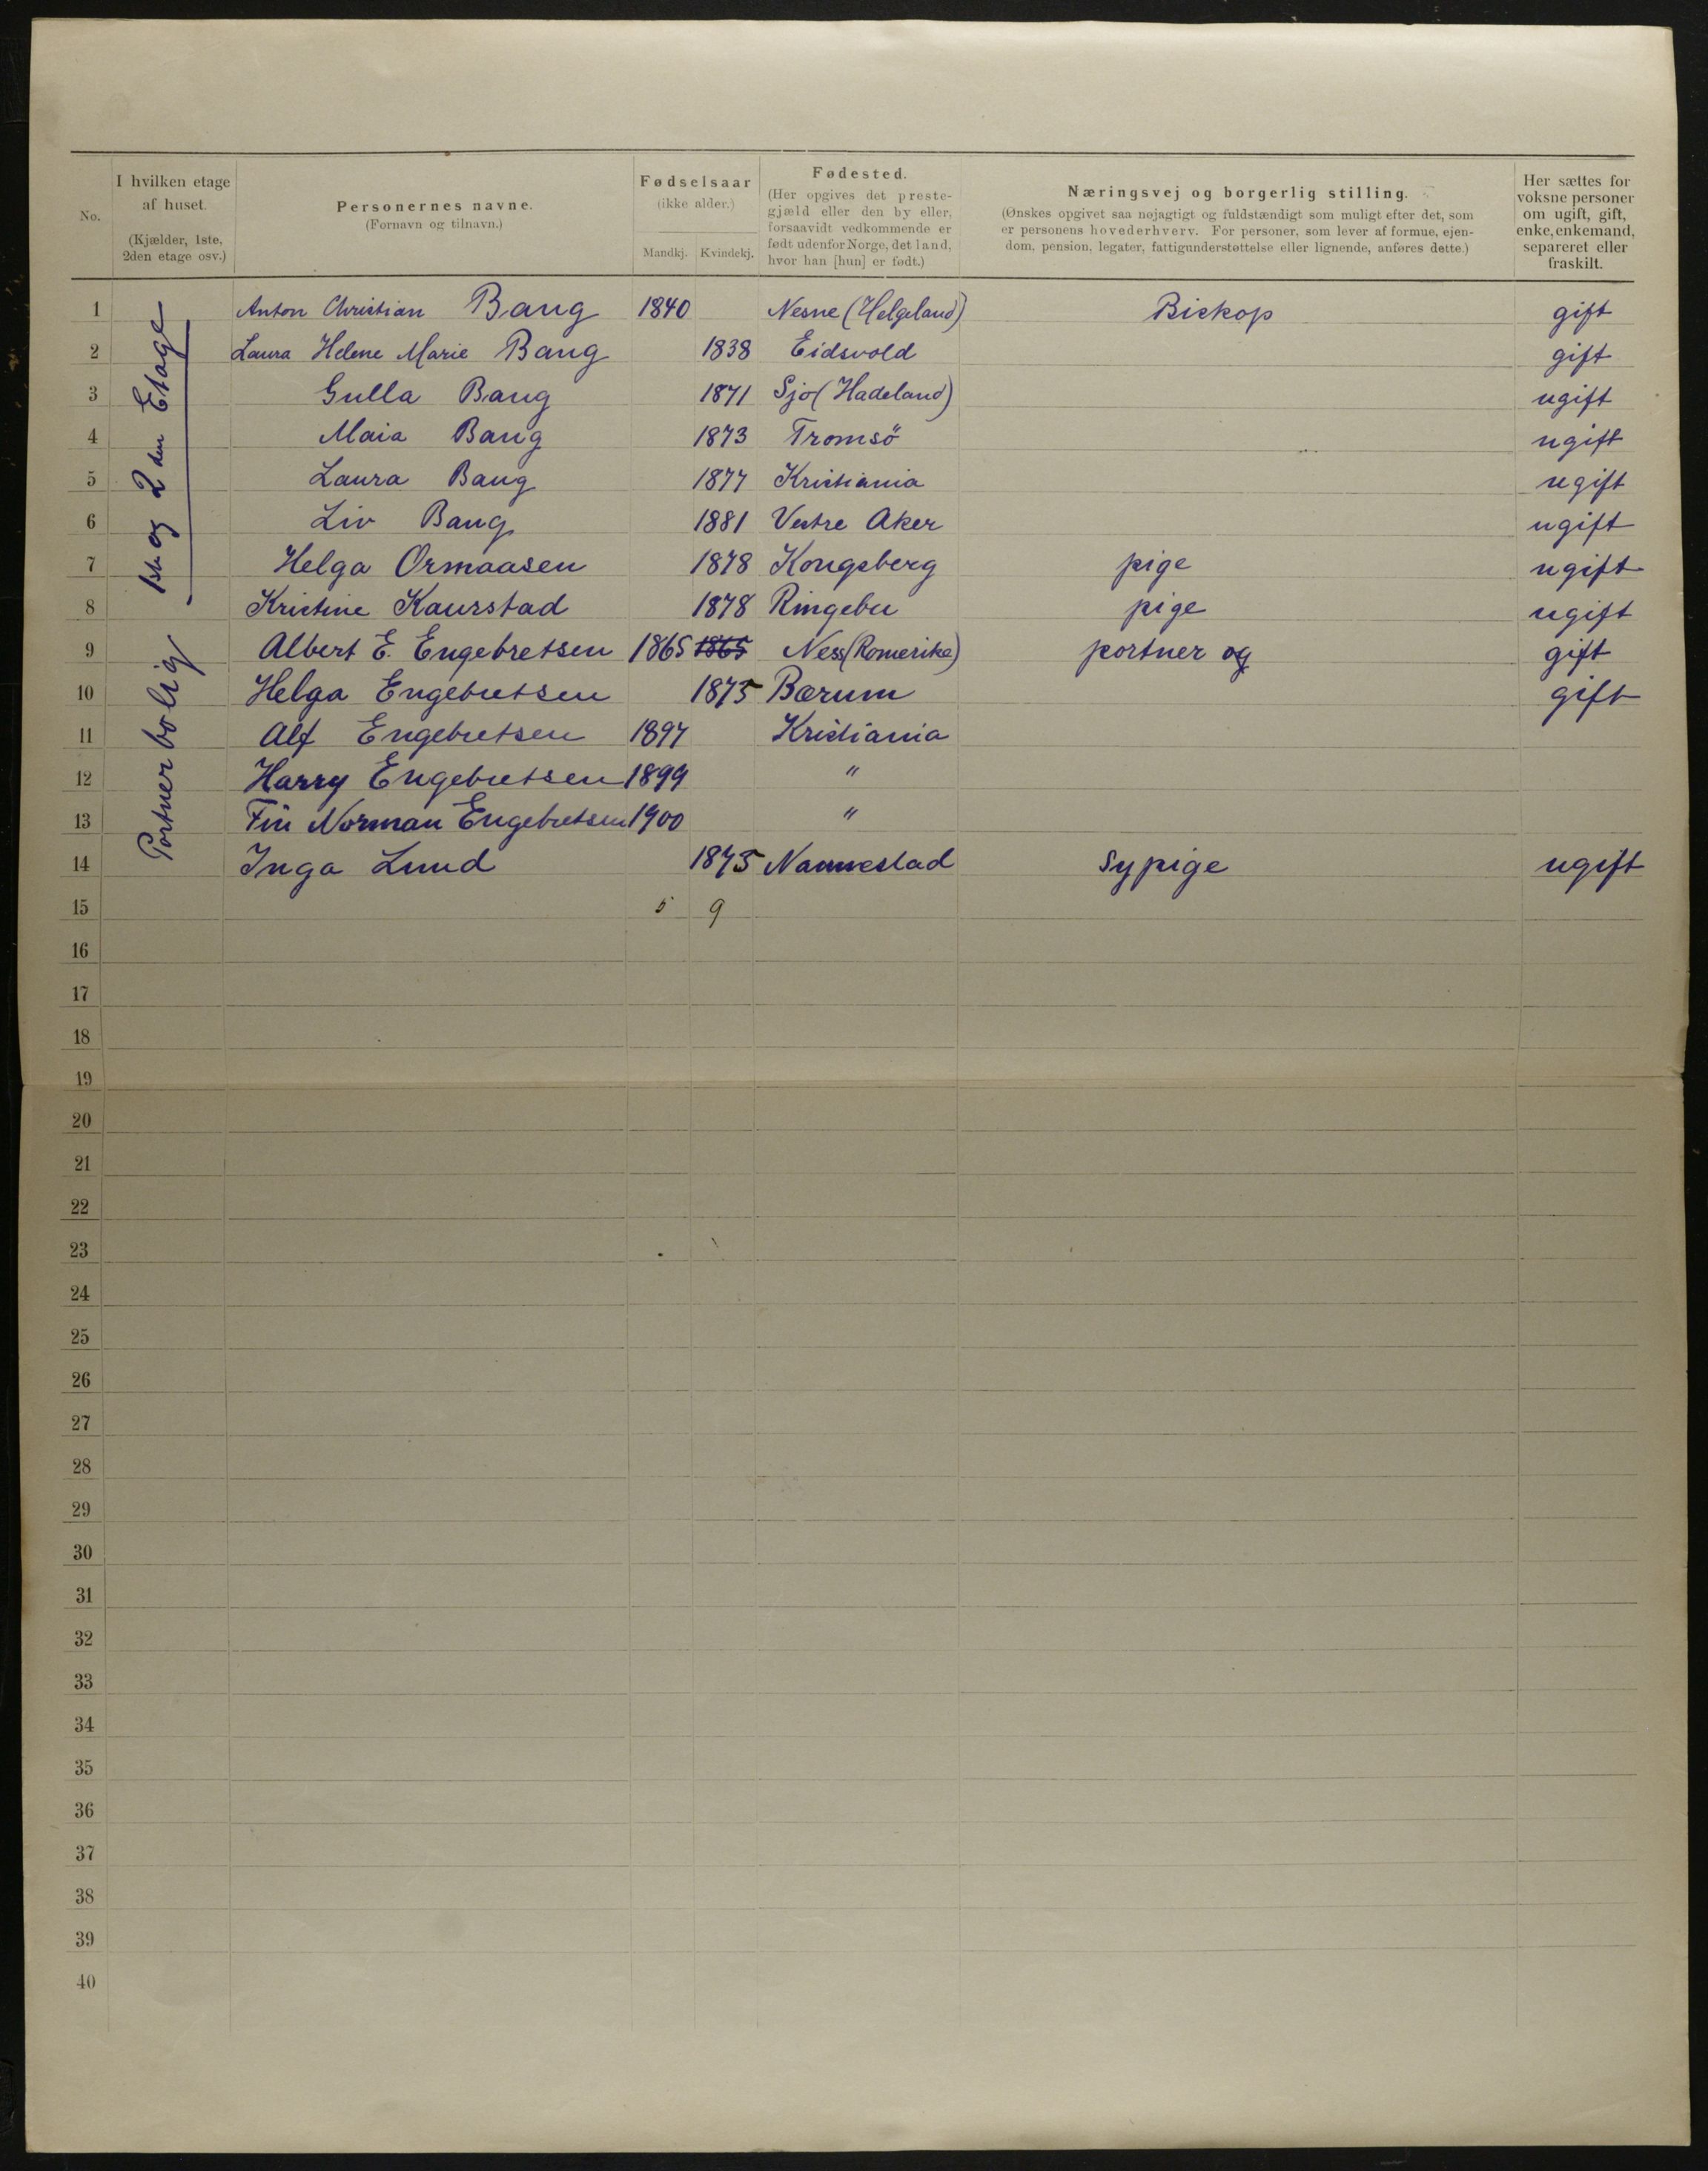 No.
I hvilken etage af huset. (Kjælder, 1ste, 2den etage osv.)
Personernes navne. (Fornavn og tilnavn.)
Fødselsaar (ikke alder.)
Mandkj. Kvindekj.
Fødested. (Her opgives det prestegjæld eller den by eller, forsaavidt vedkommende er født udenfor Norge, det land, hvor han [hun] er født.)
Næringsvej og borgerlig stilling.
(Ønskes opgivet saa nøjagtigt og fuldstændigt som muligt efter det, som er personens hovederhverv. For personer, som lever af formue, ejendom, pension, legater, fattigunderstøttelse eller lignende, anføres dette.)
Her sættes for voksne personer om ugift, gift, enke, enkemand, separeret eller fraskilt.
1ste og 2den Etage
1 Anton Christian Bang 1840 Nesne (Helgeland) Biskop gift
2 Laura Helene Marie Bang 1838 Eidsvold gift
3 Gulla Bang 1871 Sjo (Hadeland) ugift
4 Maia Bang 1873 Tromsö ugift
5 Laura Bang 1877 Kristiania ugift
6 Liv Bang 1881 Vestre Aker ugift
7 Helga Ormaasen 1878 Kongsberg pige ugift
8 Kristine Kaurstad 1878 Ringebu pige ugift
Portnerbolig
9 Albert E. Engebretsen 1865 1865 Ness (Romerike) portner og gift
10 Helga Engebretsen 1875 Bærum gift
11 Alf Engebretsen 1897 Kristiania
12 Harry Engebretsen 1899 "
13 Fin Norman Engebretsen 1900 "
14 Inga Lund 1875 Nannestad Sypige ugift
15 5 9
16
17
18
19
20
21
22
23
24
25
26
27
28
29
30
31
32
33
34
35
36
37
38
39
40